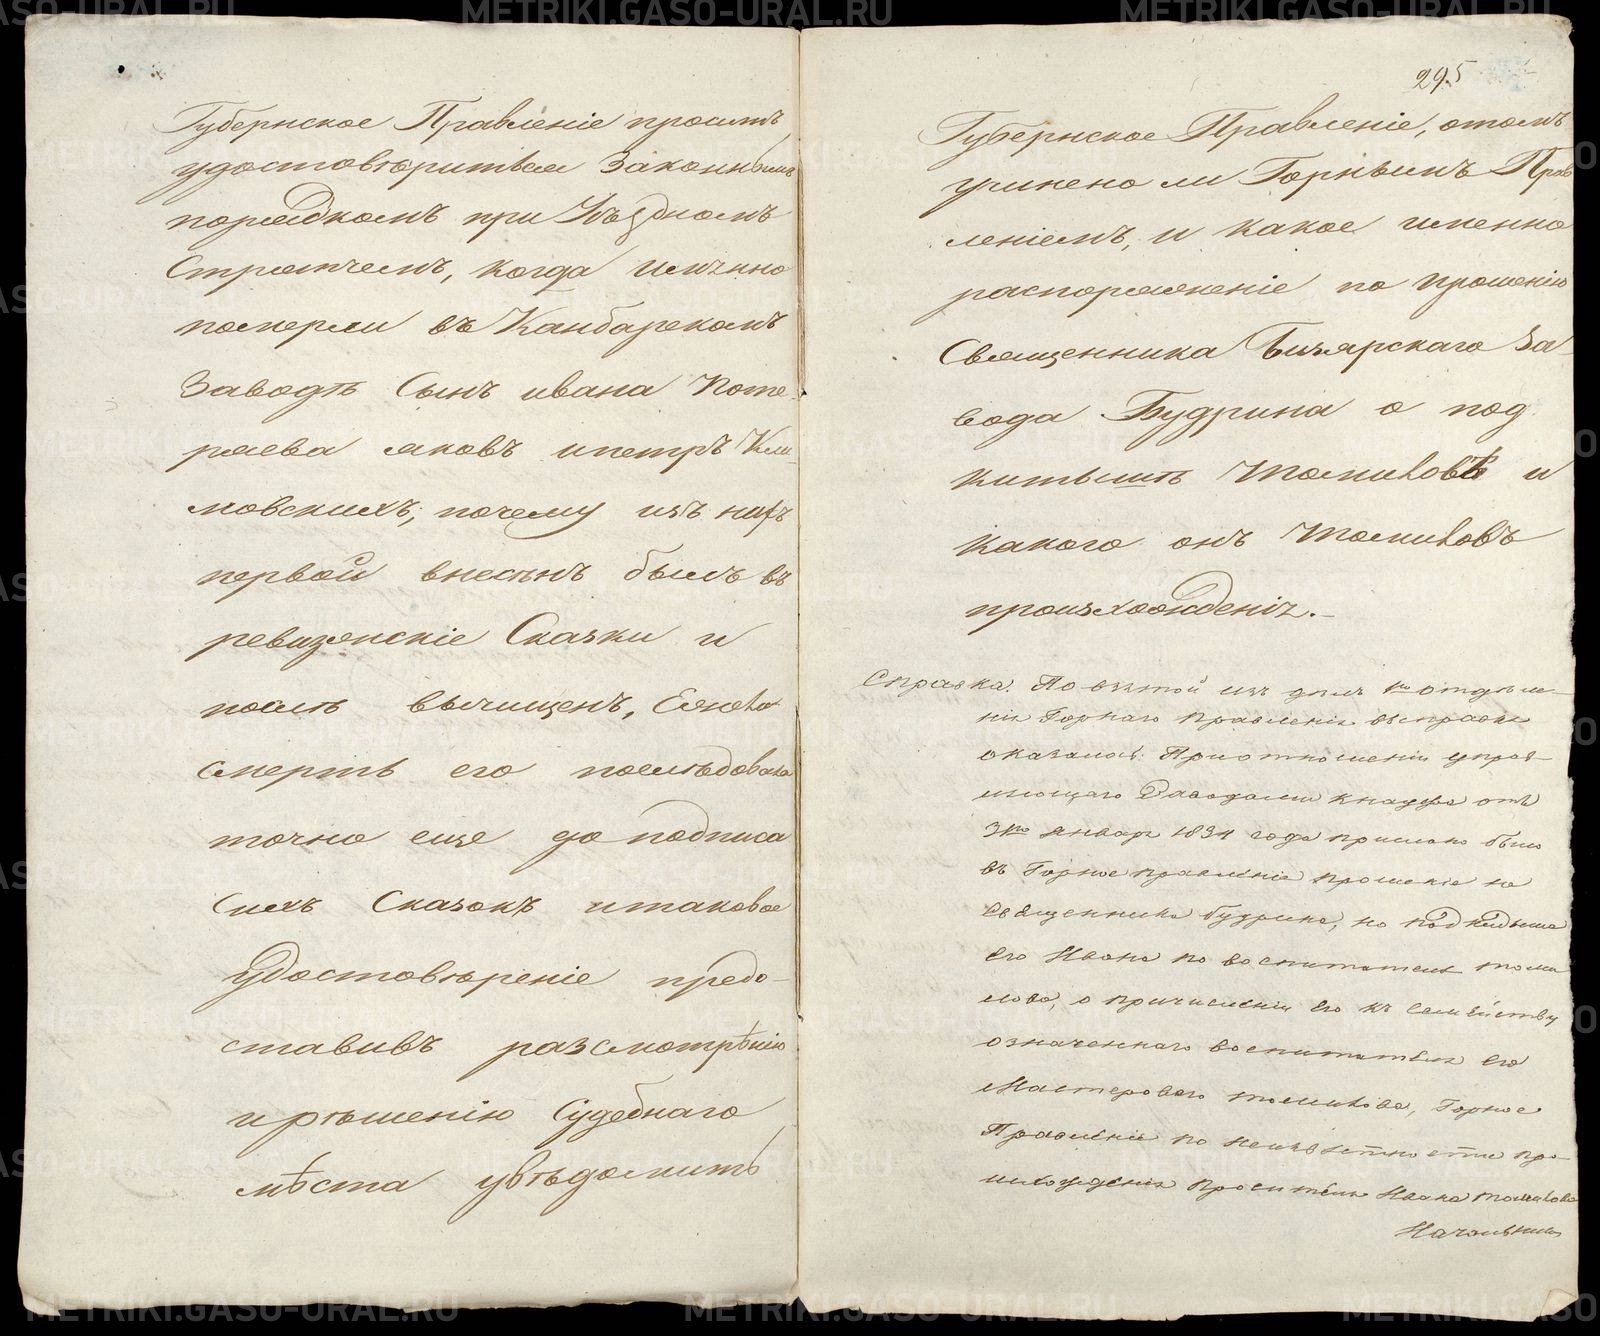 Губернское Правленіе проситъ
удостовѣриться законнымъ
порядкомъ при Уѣздномъ
Стряпчемъ, когда имянно
померли въ Камбарскомъ
Заводѣ Сынъ ивана Поте-
ряева яковъ и петръ Кли-
мовскихъ, почему изъ нихъ
первой внесенъ былъ въ
ревизенскіе Сказки и
послѣ вычищенъ, Еякова
смерть его послѣдовала
точно еще до подписа
сихъ Сказокъ и таковое
удостовѣреніе предо-
ставивъ разсмотрѣнію
и рѣшенію Судебнаго
мѣста увѣдомить
295
Губернское Правленіе, отомъ
учинено ли Горнымъ Прав
леніемъ, и какое именно
распоряженіе по прошенію
Священника Бизярскаго За-
вода Будрина о под
китышѣ Томиловѣ и
какого онъ Томиловъ
происхожденія.
Справка. По взятой изъ дѣлъ 1го отдѣле-
нія Горнаго Правленія въ справкѣ
оказалось: При отношеніи управ-
ляющаго Заводами Кнауфа отъ
3го января 1834 года прислано было
въ Горное правленіе прошеніе
Священника Будрина, но подкидыша
его Ивана по воспитателю Томи
лова, о причисленіи его къ семейству
означеннаго воспитателя его
Мастероваго Томилова, Горное
Правленіе по неизвѣстности про-
исхожденія просителя Ивана Томилова